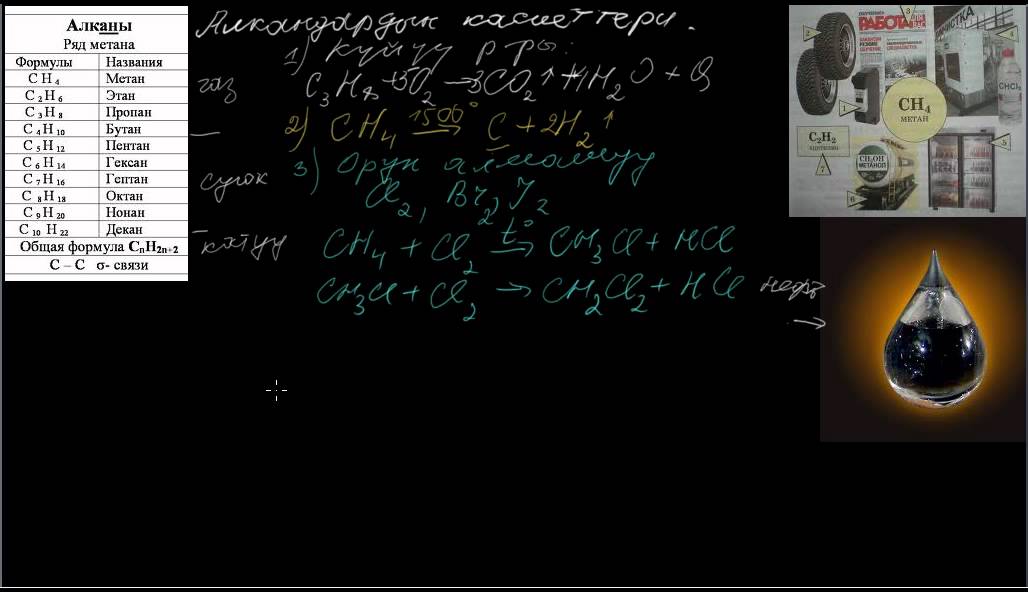 Алканы
Ряд метана
Формулы Названия
C H 4 Метан
C 2 H 6 Этан
C 3 H 8 Пропан
C 4 H 10 Бутан
C 5 H 12 Пентан
C 6 H 14 Гексан
C 7 H 16 Гептан
C 8 H 18 Октан
C 9 H 20 Нонан
C 10 H 22 Декан
Общая формула CnH2n+2
C – C σ- связи
газ
суюк
катуу
Алкандардын касиеттери.
1) Күйүү р-ры:
C3H8+5O2→3CO2↑+4H2O + Q
2) CH4 1500° → C + 2H2↑
3) Орун алмашуу
Cl2, Br2, J2
CH4 + Cl2 t° → CH3Cl + HCl
CH3Cl + Cl2 → CH2Cl2 + HCl
нефть
→
РАБОТА
2
3
4
1
CH4
МЕТАН
CHCl3
C2H2
7
CH3OH
МЕТАНОЛ
5
6